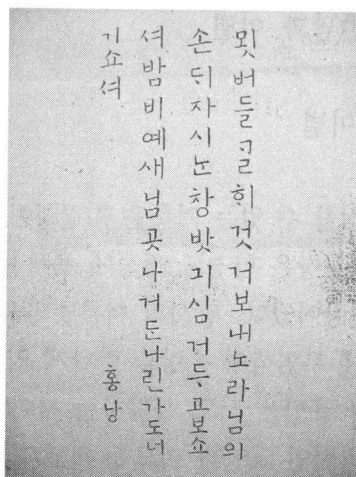 묏버들ᄀᆞᆯᄒᆡ것거보내노라님의
손ᄃᆡ자시ᄂᆞᆫ창밧긔심거두고보쇼
셔밤비예새님곳나거든나린가도너
기쇼셔 홍낭